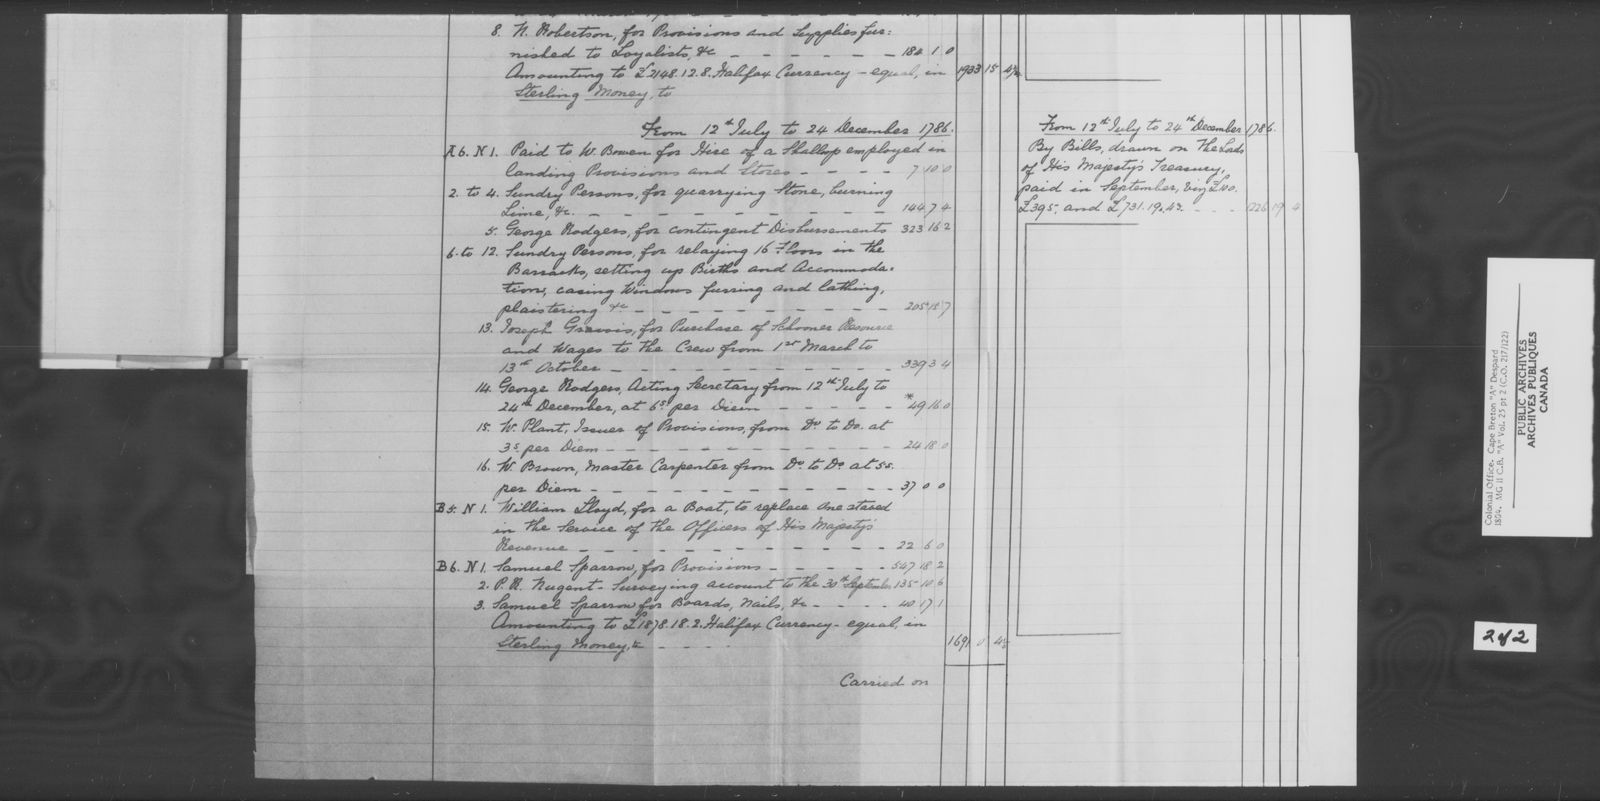 8. N. Robertson, for Provisions and Supplies fur:
nished to Loyalists, &c - - - - - - 184 1 0
Amounting to £2148.12.8. Halifax Currency - equal, in 1933 15 4½
Sterling Money, to
From 12th July to 24 December 1786.
A 6. N 1. Paid to W. Bowen for Hire of a Shallup employed in
landing Provisions and Stores - - - - 7 10 0
2. to 4. Sundry Persons, for quarrying Stone, burning
Lime, &c. - - - - - - - - 144 7 4
5. George Rodgers, for contingent Disbursements 323 16 2
6. to 12. Sundry Persons, for relaying 16 Floors in the
Barracks, setting up Births and Accommoda=
tions, casing Windows furring and lathing,
plaistering &c - - - - - - - 205 18 7
13. Joseph Gravois, for Purchase of Schooner Resource
and Wages to the Crew from 1st March to
13th October - - - - - - - 339 3 4
14. George Rodgers, Acting Secretary from 12th July to
24th December, at 6s per Diem - - - - - *49 16 0
15. W. Plant, Issuer of Provisions, from Do to Do. at
3s. per Diem - - - - - - - - 24 18 0
16. W. Brown, Master Carpenter from Do to Do at 5s.
per Diem - - - - - - - - 37 0 0
B 5. N 1. William Lloyd, for a Boat, to replace one staved
in the Service of the Officers of His Majesty's
Revenue - - - - - - - - 22 6 0
B 6. N 1. Samuel Sparrow, for Provisions - - - - - 547 18 2
2. P. N. Nugent - Surveying account to the 30th September 135 10 6
3. Samuel Sparrow for Boards, Nails, &c - - - - 40 17 1
Amounting to £1878.18.2. Halifax Currency - equal, in
Sterling Money, to - - - - 1691 0 4½
Carried on
From 12th July to 24th December 1786.
By Bills, drawn on The Lords
of His Majesty's Treasury,
paid in September, viz £100.
£395, and £731.19.4. - - - 1226 19 4
Colonial Office. Cape Breton "A" Despard
1804. MG 11 C.B. "A" Vol. 25 pt 2 (C.O. 217/122)
PUBLIC ARCHIVES
ARCHIVES PUBLIQUES
CANADA
2 of 2